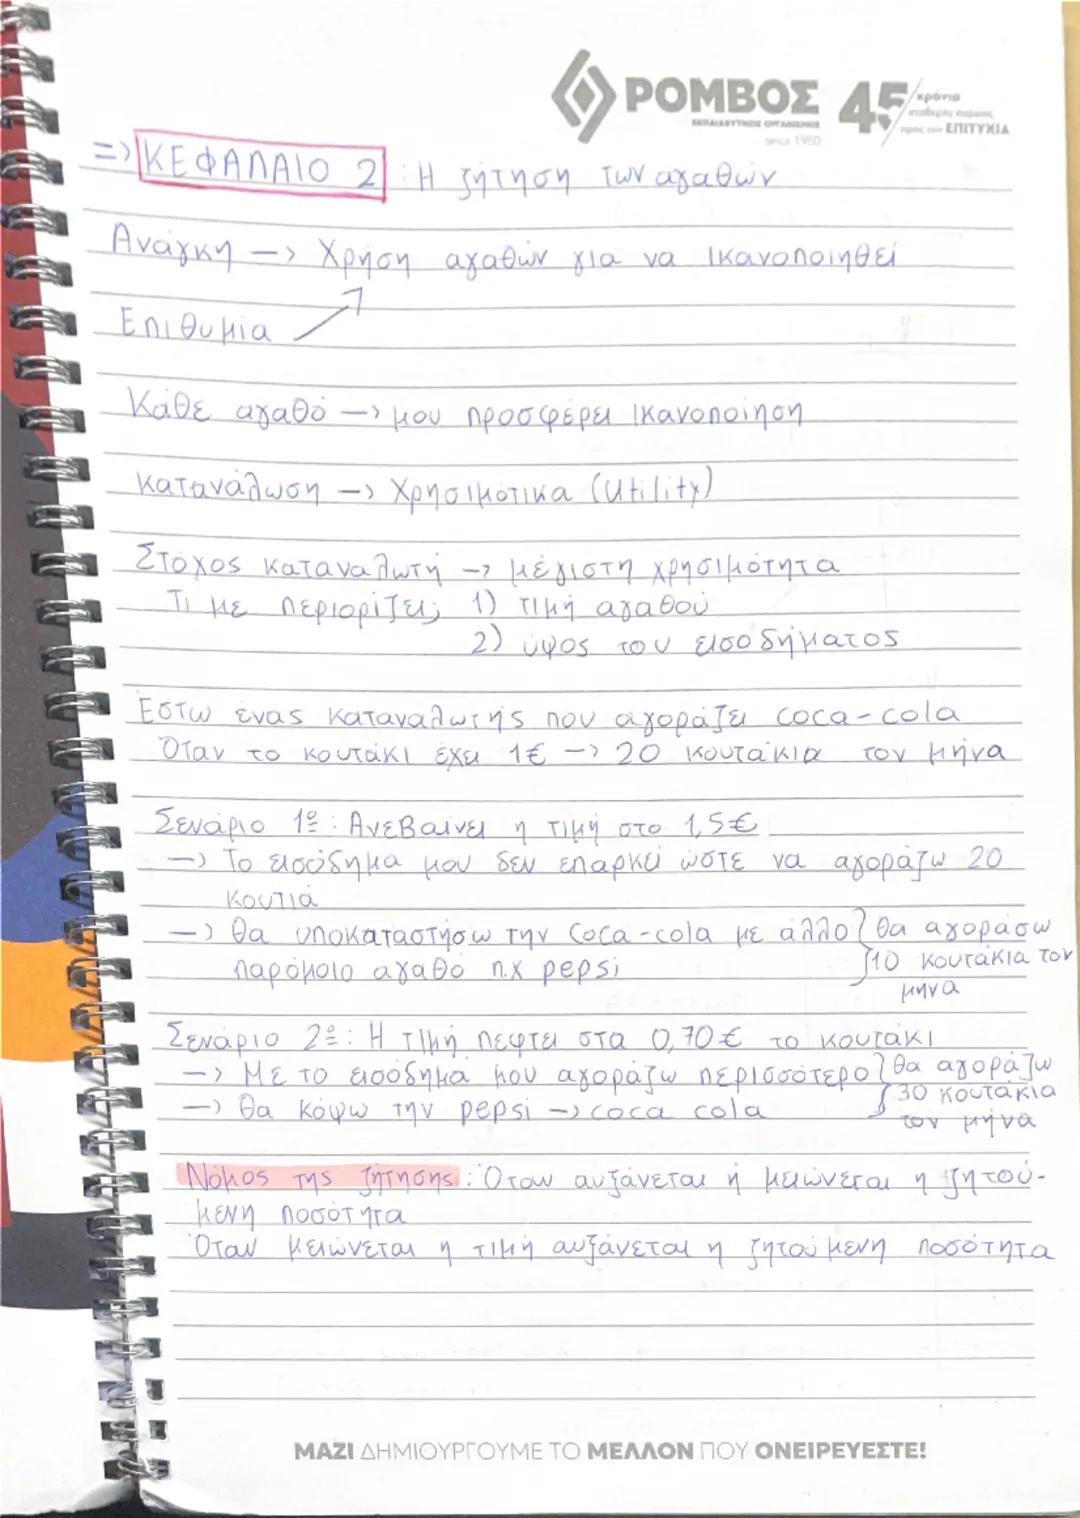 ΡΟΜΒΟΣ
ΕΚΠΑΙΔΕΥΤΙΚΟΣ ΟΡΓΑΝΙΣΜΟΣ
since 1980
45 χρόνια
σταθερής πορείας
προς την ΕΠΙΤΥΧΙΑ
=> ΚΕΦΑΛΑΙΟ 2 : Η ζήτηση των αγαθών
Ανάγκη -> Χρήση αγαθών για να ικανοποιηθεί
Επιθυμία
Κάθε αγαθό -> μου προσφέρει ικανοποίηση
Κατανάλωση -> Χρησιμότικα (Utility)
Στόχος καταναλωτή -> μέγιστη χρησιμότητα
Τι με περιορίζει; 1) τιμή αγαθού
2) ύψος του εισοδήματος
Έστω ένας καταναλωτής που αγοράζει coca-cola
Όταν το κουτάκι έχει 1€ -> 20 κουτάκια τον μήνα
Σενάριο 1º: Ανεβαίνει η τιμή στο 1,5€
-> Το εισόδημα μου δεν επαρκεί ώστε να αγοράζω 20
κουτιά
-> Θα υποκαταστήσω την coca-cola με άλλο } θα αγοράσω
παρόμοιο αγαθό π.χ pepsi 10 κουτάκια τον
μηνα
Σενάριο 2º: Η τιμή πέφτει στα 0,70€ το κουτάκι
-> Με το εισόδημα μου αγοράζω περισσότερο } θα αγοράζω
-> Θα κόψω την pepsi -> coca cola 30 κουτάκια
τον μήνα
Νόμος της ζήτησης: Όταν αυξάνεται ή μειώνεται η ζητού-
μενη ποσότητα
Όταν μειώνεται η τιμή αυξάνεται η ζητούμενη ποσότητα
ΜΑΖΙ ΔΗΜΙΟΥΡΓΟΥΜΕ ΤΟ ΜΕΛΛΟΝ ΠΟΥ ΟΝΕΙΡΕΥΕΣΤΕ!